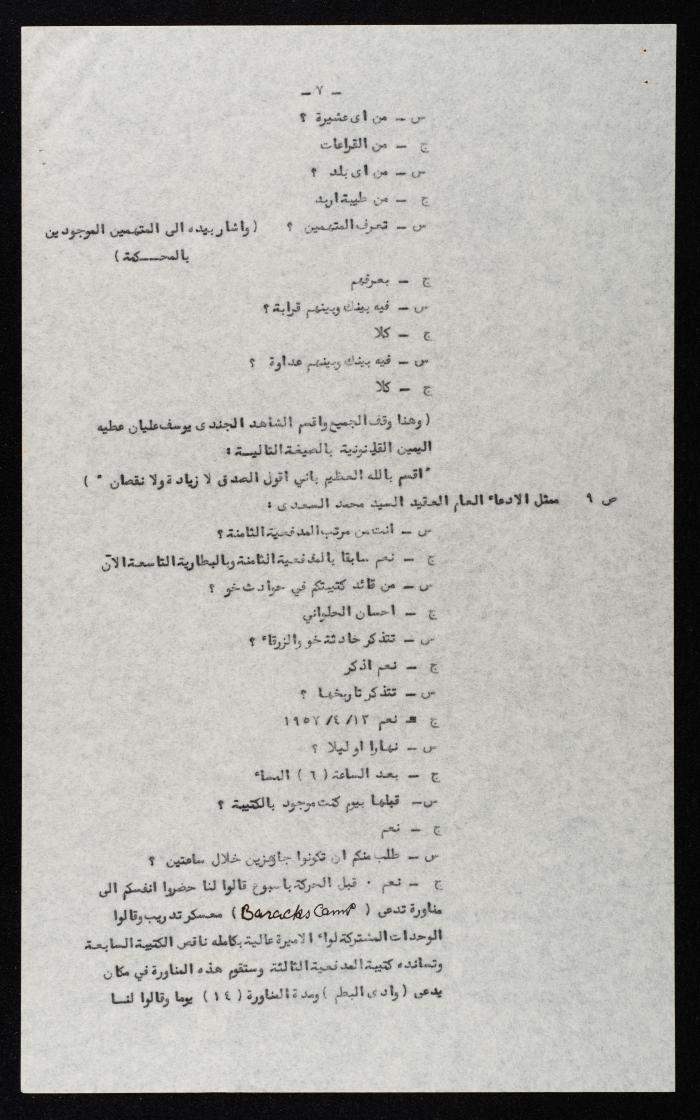 - ٧ -
س - من اى عشيرة ؟
ج - من القراعات
س - من اى بلد ؟
ج - من طيبة اربد
س - تعرف المتهمين ؟ ( واشار بيده الى المتهمين الموجودين
بالمحــكمة )
ج - بعرفهم
س - فيه بينك وبينهم قرابة ؟
ج - كلا
س - فيه بينك وبينهم عداوة ؟
ج - كلا
( وهنا وقف الجميع واقسم الشاهد الجندى يوسف عليان عطيه
اليمين القانونية بالصيغة التاليـة :
"اقسم بالله العظيم باني اقول الصدق لا زيادة ولا نقصان " )
ص ٩ ممثل الادعاء العام العقيد السيد محمد السعدى :
س - انت من مرتب المدفعية الثامنة ؟
ج - نعم سابقا بالمدفعية الثامنة وبالبطارية التاسعة الآن
س - من قائد كتيبتكم في حوادث خو ؟
ج - احسان الحلواني
س - تتذكر حادثة خو والزرقاء ؟
ج - نعم اذكر
س - تتذكر تاريخهـا ؟
ج - نعم ١٣/ ٤/ ١٩٥٧
س - نهارا او ليلا ؟
ج - بعد الساعة ( ٦ ) المساء
س - قبلها بيوم كنت موجود بالكتيبة ؟
ج - نعم
س - طلب منكم ان تكونوا جاهزين خلال ساعتين ؟
ج - نعم ٠ قبل الحركة باسبوع قالوا لنا حضروا انفسكم الى
مناورة تدعى ( Baracks Camp ) معسكر تدريب وقالوا
الوحدات المشتركة لواء الاميرة عالية بكامله ناقص الكتيبة السابعة
وتسانده كتيبة المدفعية الثالثة وستقوم هذه المناورة في مكان
يدعى ( وادى البطم ) ومدة المناورة ( ١٤ ) يوما وقالوا لنـا